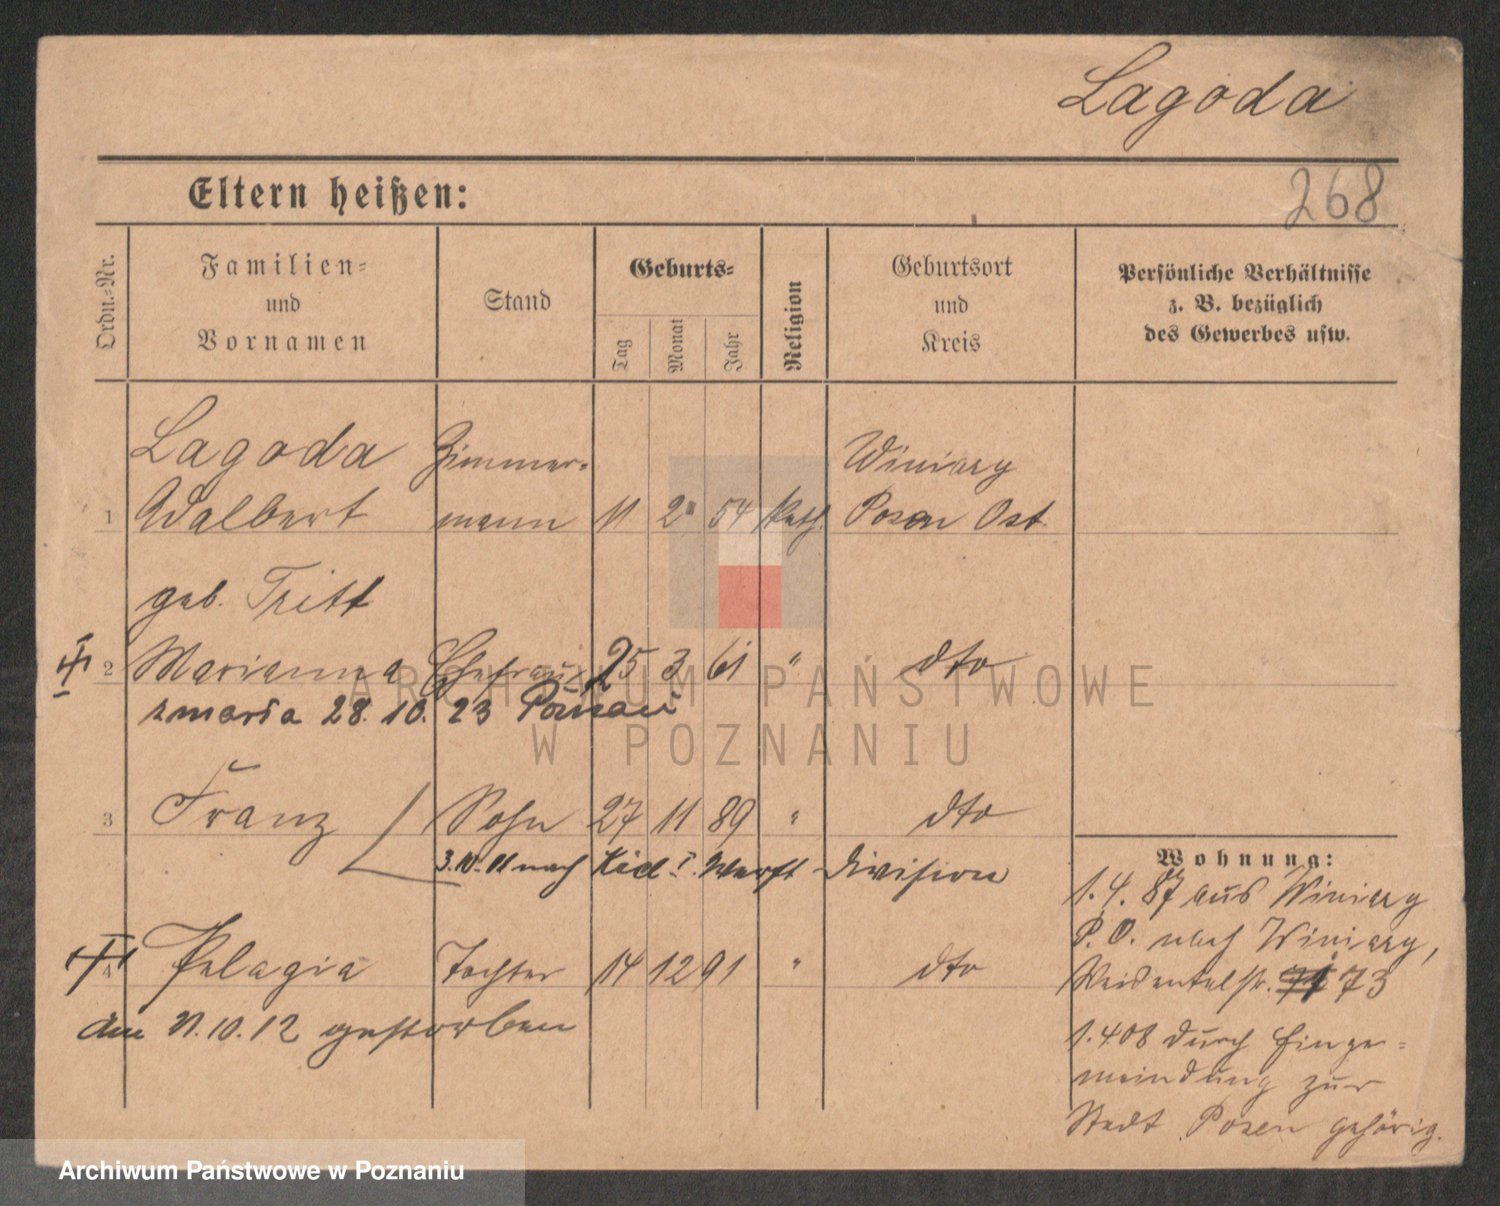 Lagoda
Eltern heißen:
268
Ordn.-Nr.
Familien-
und
Vornamen
Stand
Geburts-
Tag
Monat
Jahr
Religion
Geburtsort
und
Kreis
Persönliche Verhältnisse
z. B. bezüglich
des Gewerbes usw.
Lagoda Zimmer- Winiary
1 Adalbert mann 11 2 54 kath. Posen Ost.
geb. Tritt
2 Marianna Ehefrau 25 3 61 " dto
zmarła 28.10.23 Poznań
3 Franz Sohn 27 11 89 " dto
3.10.11 nach Kiel I. Werft-Division
4 Pelagia Tochter 14 12 91 " dto
den 21.10.12 gestorben
Wohnung:
1.4.87 aus Winiary
P.O. nach Winiary,
73
1.4.08 durch Einge-
meindung zur
Stadt Posen gehörig.
ARCHIWUM PAŃSTWOWE
W POZNANIU
Archiwum Państwowe w Poznaniu